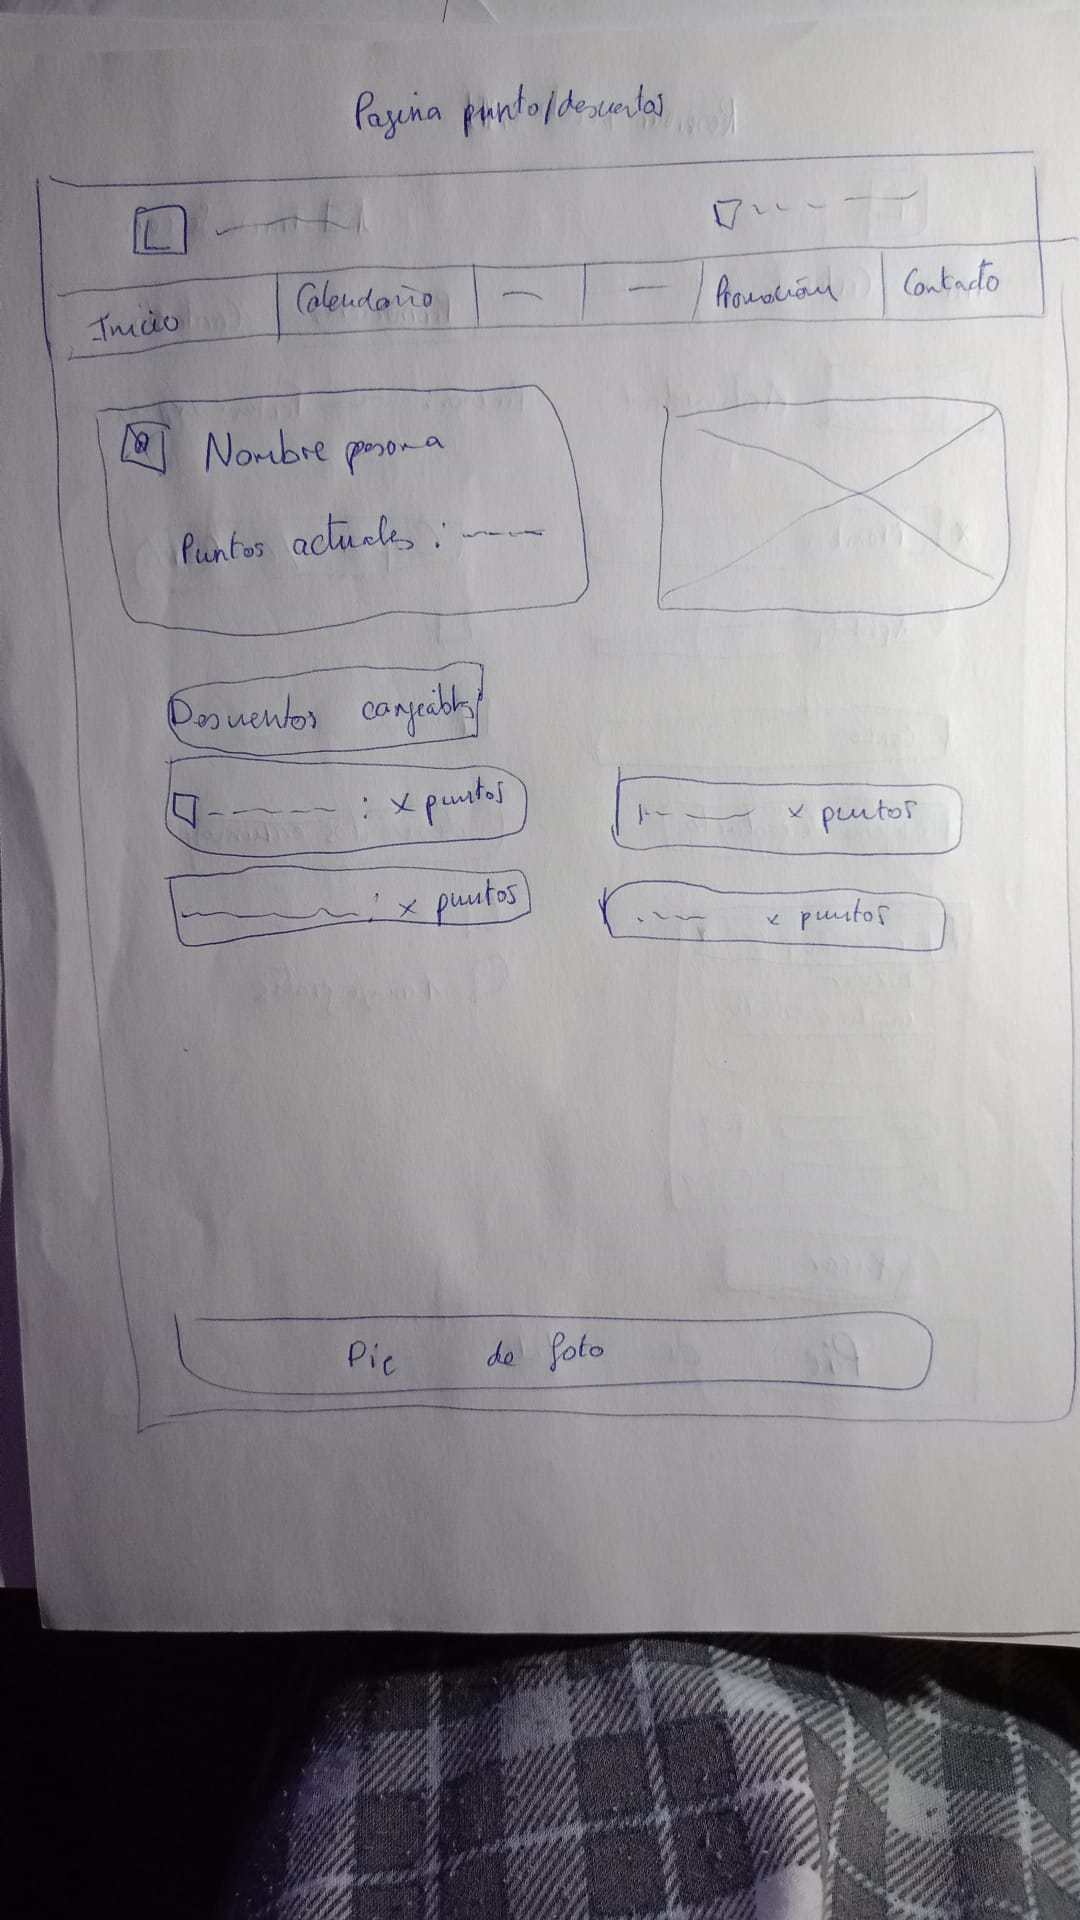 Pagina punto/descuentos
L
Inicio Calendario Promoción Contacto
Nombre persona
Puntos actuales :
Descuentos canjeables
: x puntos
x puntos
: x puntos
x puntos
Pie de foto